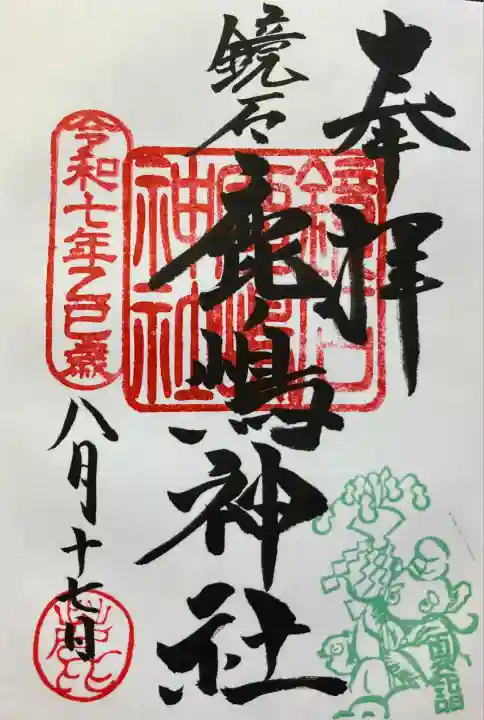 奉拝
鏡石
鹿嶋神社
鏡石鹿嶋神社
令和七年乙巳歳
八月十七日
夏詣